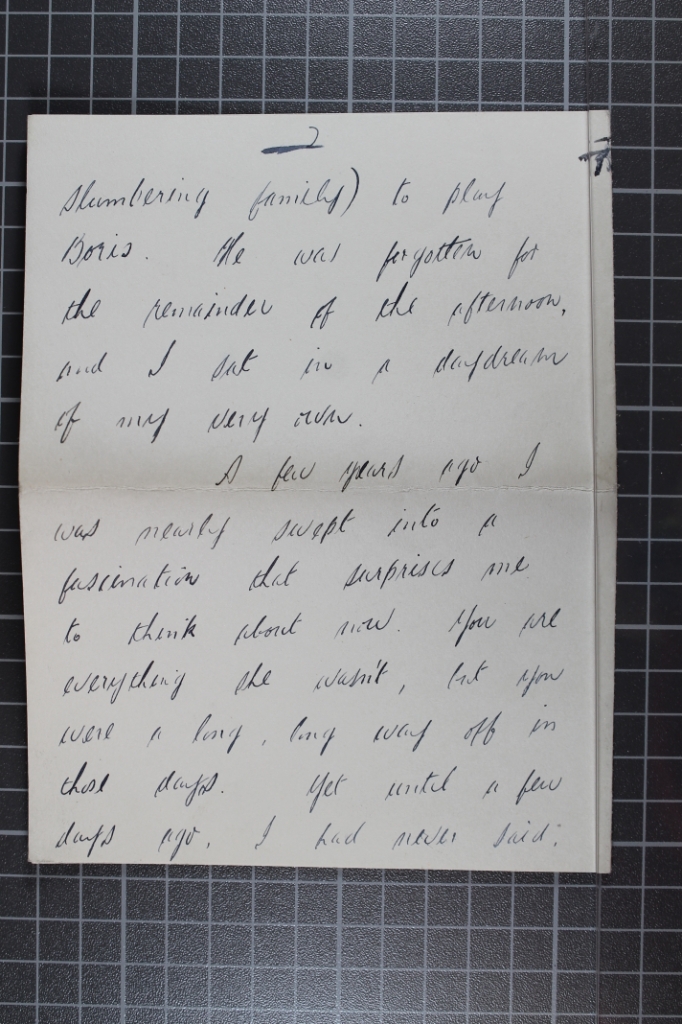 2
slumbering family) to play
Boris. He was forgotten for
the remainder of the afternoon,
and I sat in a daydream
of my very own.
A few years ago I
was nearly swept into a
fascination that surprises me
to think about now. You are
everything she wasn't, but you
were a long, long way off in
those days. Yet until a few
days ago, I had never said: